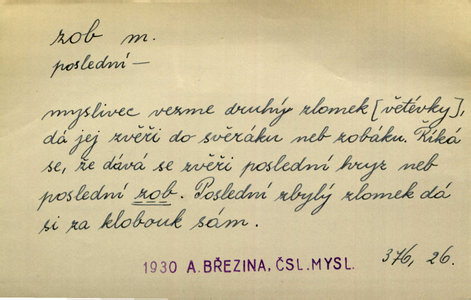 zob m.
poslední —
myslivec vezme druhý zlomek [větévky],
dá jej zvěři do svěráku neb zobáku. Říká
se, že dává se zvěři poslední hryz neb
poslední zob. Poslední zbylý zlomek dá
si za klobouk sám.
1930 A. BŘEZINA, ČSL. MYSL. 376, 26.